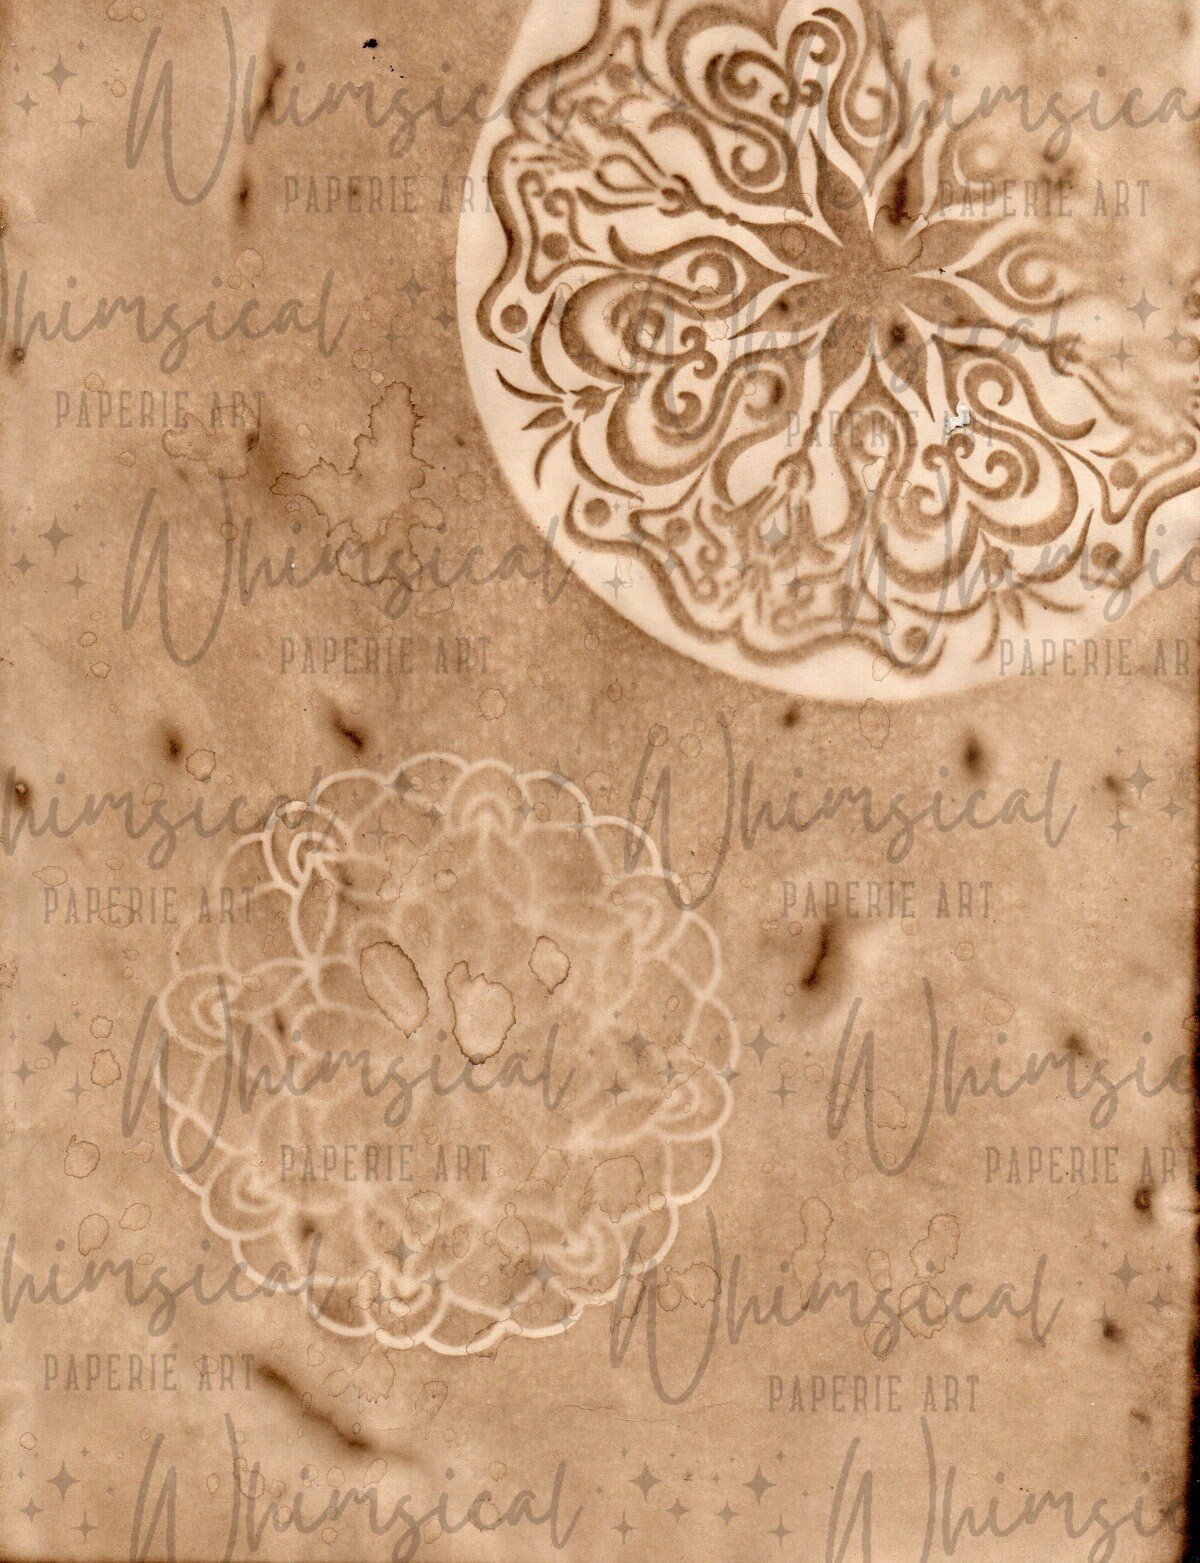 Whimsical
PAPERIE ART
Whimsical
PAPERIE ART
Whimsical
PAPERIE ART
Whimsical
PAPERIE ART
Whimsical
PAPERIE ART
Whimsical
PAPERIE ART
Whimsical
PAPERIE ART
Whimsical
PAPERIE ART
Whimsical
PAPERIE ART
Whimsical
PAPERIE ART
Whimsical
PAPERIE ART
Whimsical
PAPERIE ART
Whimsical
Whimsical